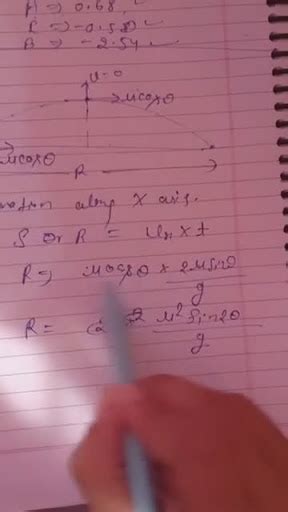 A ⇒ 0.68, ✓
R ⇒ -0.58 ✓
B ⇒ -2.54 ✓
u=0
→ ucosθ
ucosθ
R
along X axis.
S or R = uₓ × t
R ⇒ ucosθ × 2usinθ
g
R = u² sin2θ
g